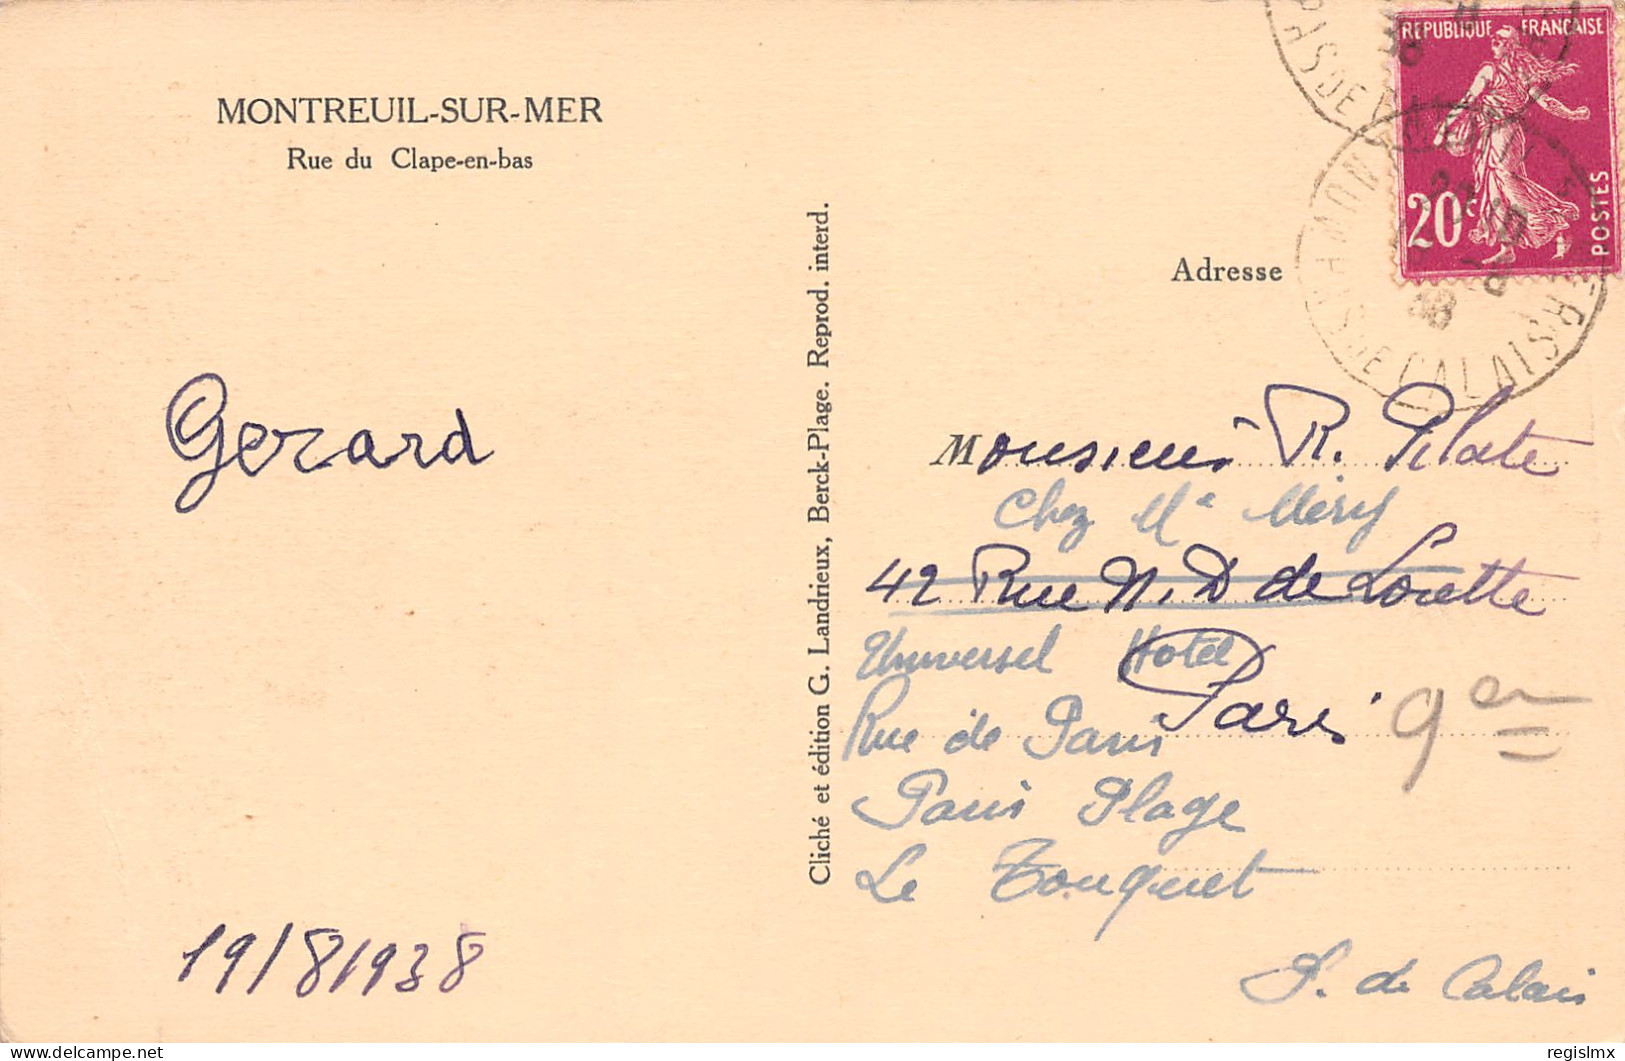 MONTREUIL-SUR-MER
Rue du Clape-en-bas
Gerard
19/8/1938
Cliché et édition G. Landrieux, Berck-Plage. Reprod. interd.
REPUBLIQUE FRANÇAISE
20c
POSTES
PAS DE CALAIS
38
Adresse
Monsieur R. Pilate
Chez Me Méry
42 Rue N. D de Lorette
Universel Hotel
Paris 9en
Rue de Paris
Paris Plage
Le Touquet
P. de Calais
delcampe.net
regislmx